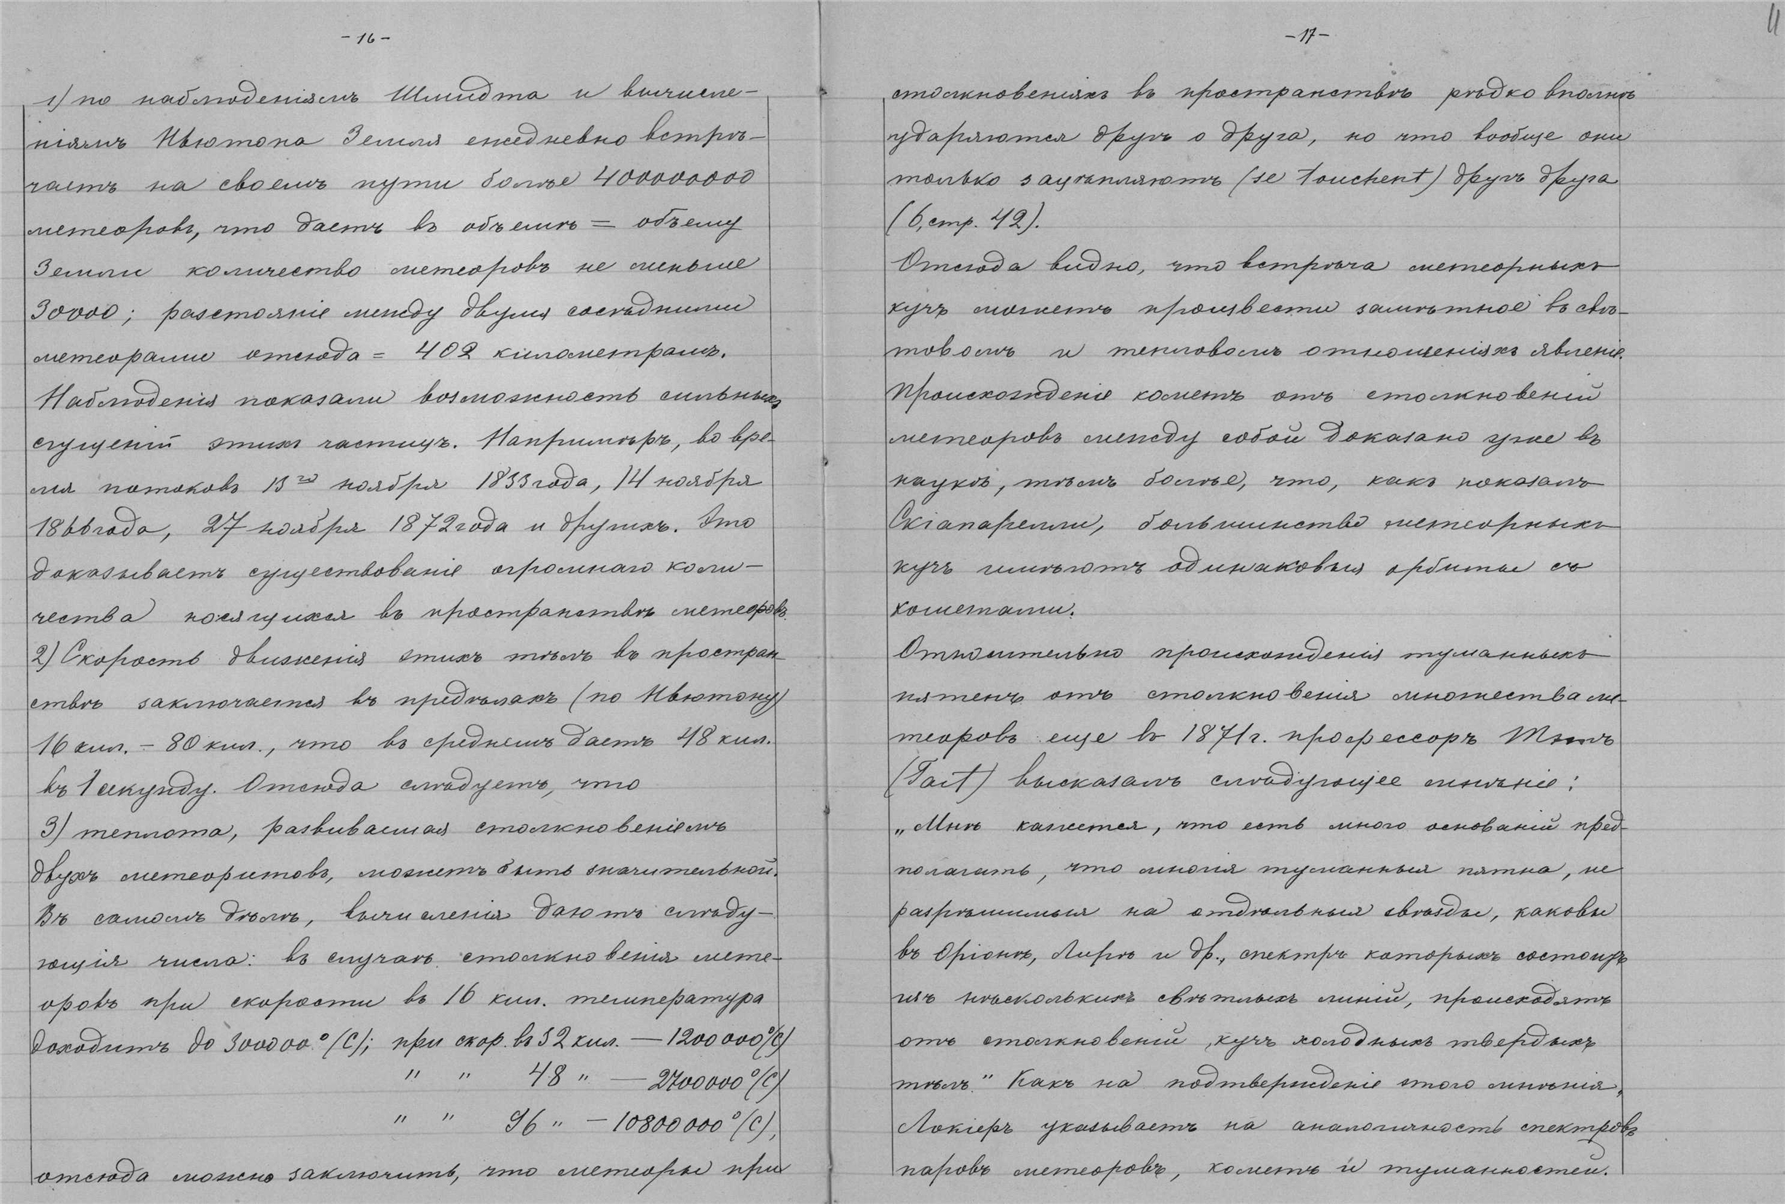 - 16 -
1) по наблюденіямъ Шмидта и вычисле-
ніямъ Ньютона Земля ежедневно встрѣ-
чаетъ на своемъ пути болѣе 400000000
метеоровъ, что даетъ въ объемѣ = объему
Земли количество метеоровъ не меньше
30000; разстояніе между двумя сосѣдними
метеорами отсюда = 402 километрамъ.
Наблюденія показали возможность сильныхъ
сгущеній этихъ частицъ. Напримѣръ, во вре-
мя потоковъ 13го ноября 1833 года, 14 ноября
1866 года, 27 ноября 1872 года и другихъ. Это
доказываетъ существованіе огромнаго коли-
чества носящихся въ пространствѣ метеоровъ.
2) Скорость движенія этихъ тѣлъ въ простран
ствѣ заключается въ предѣлахъ (по Ньютону)
16 кил. – 80 кил., что въ среднемъ даетъ 48 кил.
въ 1 секунду. Отсюда слѣдуетъ, что
3) теплота, развиваемая столкновеніемъ
двухъ метеоритовъ, можетъ быть значительной.
Въ самомъ дѣлѣ, вычисленія даютъ слѣду-
ющія числа: въ случаѣ столкновенія мете-
оровъ при скорости въ 16 кил. температура
доходитъ до 300000°(С); при скор. въ 32 кил. — 1200000°(С)
" " 48 " — 2700000°(С)
" " 96 " — 10800000°(С),
отсюда можно заключить, что метеоры при
- 17 -
11
столкновеніяхъ въ пространствѣ рѣдко вполнѣ
ударяются другъ о друга, но что вообще они
только зацѣпляютъ (se touchent) другъ друга
(6, стр. 42).
Отсюда видно, что встрѣча метеорныхъ
кучъ можетъ произвести замѣтное въ свѣ-
товомъ и тепловомъ отношеніяхъ явленіе.
Происхожденіе кометъ отъ столкновеній
метеоровъ между собой доказано уже въ
наукѣ, тѣмъ болѣе, что, какъ показалъ
Скіапарелли, большинство метеорныхъ
кучъ имѣютъ одинаковыя орбиты съ
кометами.
Относительно происхожденія туманныхъ
пятенъ отъ столкновенія множества ме-
теоровъ еще въ 1871 г. профессоръ Тэтъ
(Tait) высказалъ слѣдующее мнѣніе:
„Мнѣ кажется, что есть много основаній пред-
полагать, что многія туманныя пятна, не
разрѣшимыя на отдѣльныя звѣзды, каковы
въ Оріонѣ, Лирѣ и др., спектръ которыхъ состоитъ
изъ нѣсколькихъ свѣтлыхъ линій, происходятъ
отъ столкновеній кучъ холодныхъ твердыхъ
тѣлъ." Какъ на подтвержденіе этого мнѣнія,
Локіеръ указываетъ на аналогичность спектровъ
паровъ метеоровъ, кометъ и туманностей.